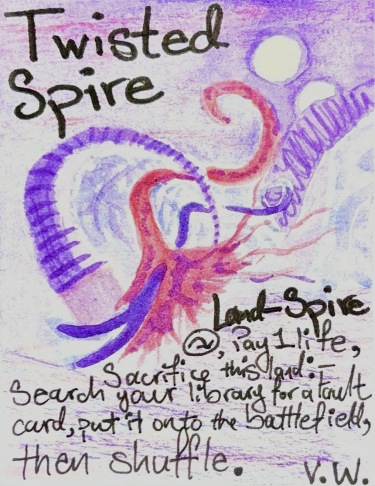 Twisted
Spire
Land-Spire
, Pay 1 life,
Sacrifice this land:-
Search your library for a Fault
card, put it onto the battlefield,
then shuffle.
V.W.